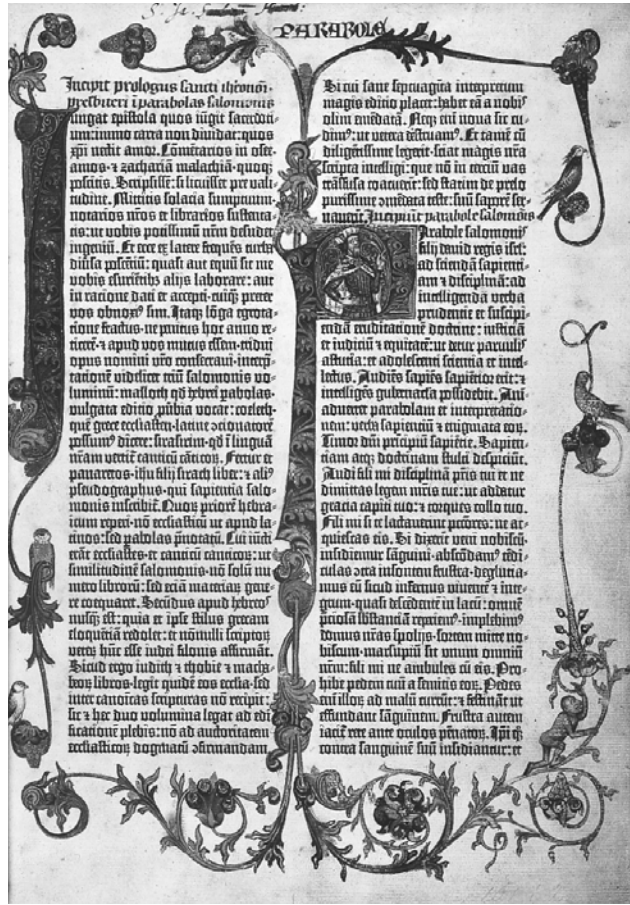 PARABOLE
Incipit prologus sancti iheronimi
presbiteri ĩ parabolas salomonis
Iungat epistola quos iũgit sacerdoti-
um: immo carta non dividat: quos
xp̃i nectit amor. Cõmẽtarios in osee-
amos · ⁊ zachariã malachiã · quoq;
poscitis. Scripsissẽ: si licuisset pre vali-
tudine. Mittitis solacia sumptuum ·
notarios nr̃os et librarios sustenta-
tis: ut vobis potissimũ nr̃m desudet
ingeniũ. Et ecce ex latere frequẽs turba
div̾sa poscẽtiũ: quasi aut equũ sit me
vobis esuriẽtib; alijs laborare: aut
in racione dati et accepti · cuiq̃; preter
vos obnoxꝰ sim. Itaq; lõga egrota-
tione fractus · ne penitus hoc anno re-
ticerẽ · ⁊ apud vos mutus essem · tridui
opus nomini vr̃o consecravi · interp̃-
tationẽ videlicet triũ salomonis vo-
luminũ: masloth qd̃ hebrei pabolas ·
vulgata editio pũbia vocat: coeleth ·
quẽ grece ecclesiasten · latine ↄcionatorẽ
possumꝰ dicere: sirasirim · qd̃ ĩ linguã
nr̃am vertit̃ canticũ cãticoꝝ. Fertur et
panaretos · ihu filij sirach liber: ⁊ aliꝰ
pseudographus · qui sapientia salo-
monis inscribit̃. Quoꝝ priorẽ hebra-
icum reperi · nõ ecclesiasticũ ut apud la-
tinos: sed pabolas p̃notatũ. Cui iũcti
erãt ecclesiastes · et canticũ canticoꝝ: ut
similitudinẽ salomonis · nõ solũ nu-
mero libroruɜ: sed eciã materiaꝝ gene-
re coequaret. Secũdus apud hebreos
nusq̃ est: quia et ipse stilus grecam
eloquẽtiã redolet: et nõnulli scriptoꝝ
veteꝝ hũc esse iudei filonis affirmãt.
Sicud ergo iudith ⁊ thobie ⁊ macha-
beoꝝ libros · legit quidẽ eos ecclesia · sed
inter canonicas scripturas nõ recipit:
sic ⁊ hec duo volumina legat ad edi-
ficationẽ plebis: nõ ad auctoritatem
ecclesiasticoꝝ dogmatũ ↄfirmandam.
Si cui sane septuagĩta interpretum
magis editio placet: habet eã a nobis
olim emẽdatã. Neq; em̃ nova sic cu-
dimꝰ: ut vetera destruamꝰ. Et tamẽ cũ
diligẽtissime legerit · sciat magis nr̃a
scripta intelligi: que nõ in terciũ vas
trãsfusa coacuerĩt: sed statim de prelo
purissime ↄmẽdata teste: suũ saporẽ ser-
vaverĩt. Incipiũt parabole salomõis
Parabole salomonis
filij david regis isrl̃:
ad sciendã sapienti-
am ⁊ disciplinã: ad
intelligendã verba
prudentie et suscipi-
endã eruditationẽ doctrine: iusticiã
et iudiciũ ⁊ equitatẽ: ut detur parvulis
astutia: et adolescenti scientia et intel-
lectus. Audiẽs sapiẽs sapiẽtior erit: ⁊
intelligẽs gubernacla possidebit. Ani-
advertet parabolam et interpretatio-
nem: verba sapientiũ ⁊ enigmata eoꝝ.
Timor dñi pricipiũ sapiẽtie. Sapien-
tiam atq; doctrinam stulti despiciũt.
Audi fili mi disciplinã pr̃is tui et ne
dimittas legem mr̃is tue: ut addatur
gracia capiti tuo: ⁊ torques collo tuo.
Fili mi si te lactaverint pctõres: ne ac-
quiescas eis. Si dixerĩt veni nobiscũ ·
insidiemur sãguini · abscõdamꝰ tẽdi-
culas ↄtra insontem frustra · deglutia-
mus eũ sicud infernus viventẽ ⁊ inte-
grum · quasi descẽdentẽ in lacũ: omnẽ
p̃ciosã sb̃stantiã repiemꝰ · implebimꝰ
domus nr̃as spolijs · sortem mitte no-
biscum · marsupiũ sit unum omniũ
nr̃m: fili mi ne ambules cũ eis. Pro-
hibe pedem tuũ a semitis eoꝝ. Pedes
em̃ illoꝝ ad malũ currũt: ⁊ festinãt ut
effundant sãguinem. Frustra autem
iacit̃ rete ante oculos pẽnatoꝝ. Ipi q̃;
contra sanguinẽ suũ insidiantur: et